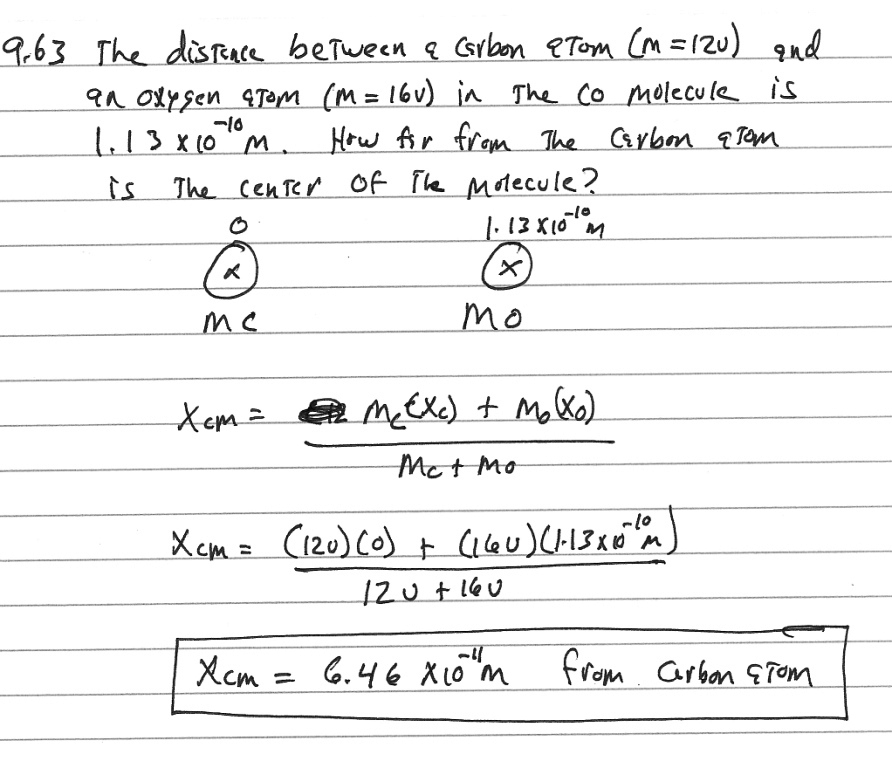 9.63 The distance between a carbon atom (m=12u) and
an oxygen atom (m=16u) in The CO molecule is
1.13 x 10^-10 m. How far from The Carbon atom
is The center of The Molecule?
0 1.13 x 10^-10 m
x x
mc mo
Xcm = mc(xc) + mo(xo)
mc + mo
Xcm = (12u)(0) + (16u)(1.13 x 10^-10 m)
12u + 16u
Xcm = 6.46 x 10^-11 m from Carbon atom